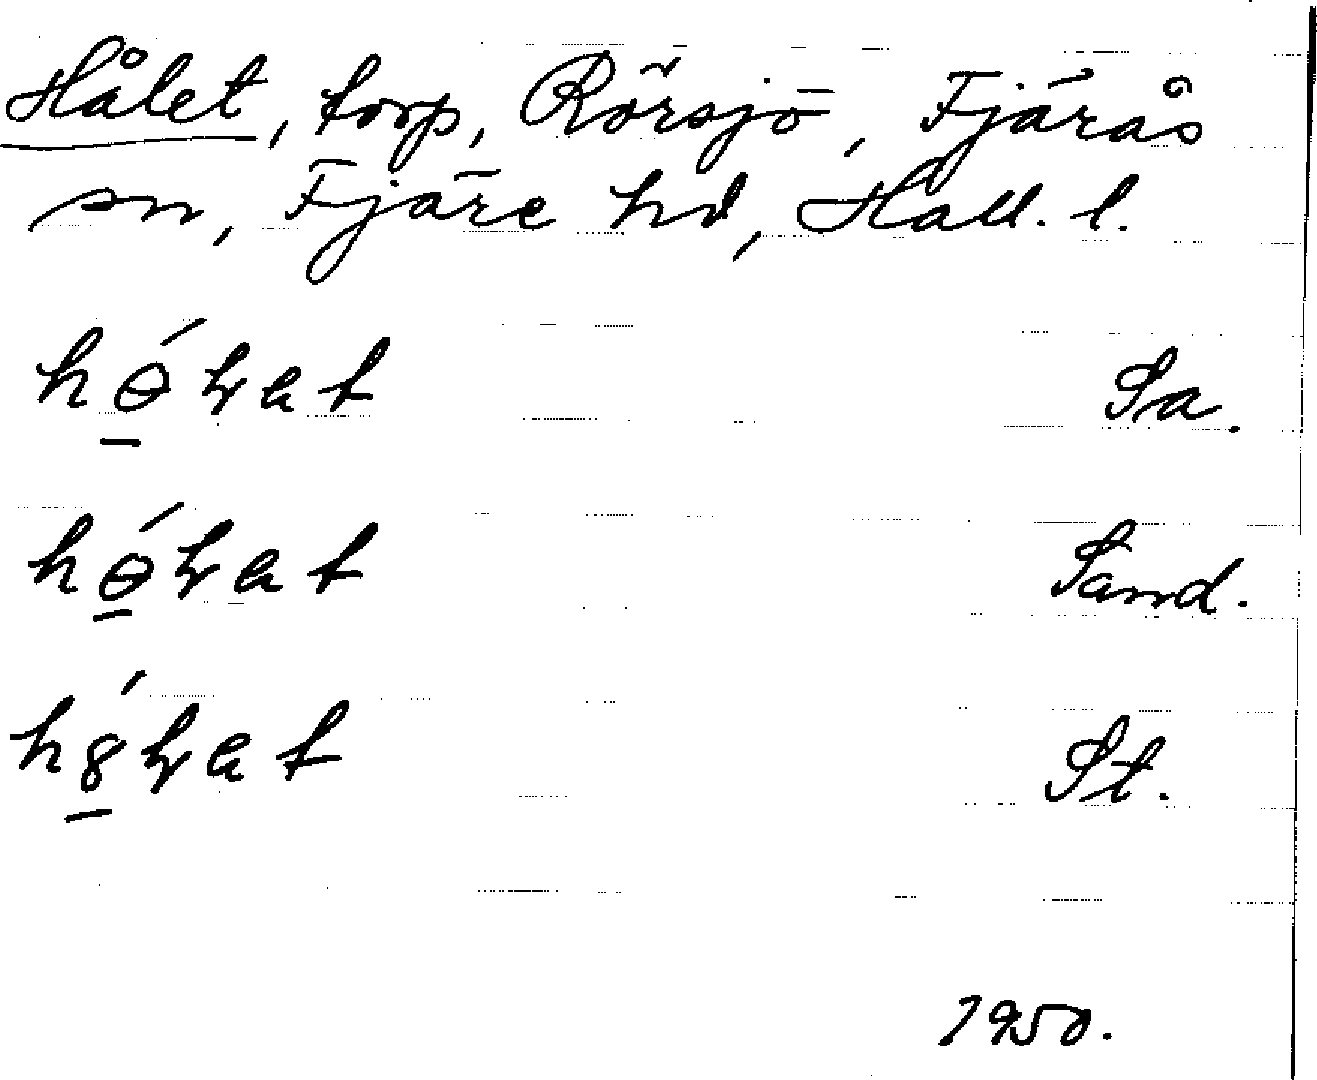 Hålet, torp, Rörsjö, Fjärås
sn, Fjäre hd, Hall. l.
hɵ́ɫat Sa.
hɵ́ɫat Sand.
h8́ɫat St.
1950.